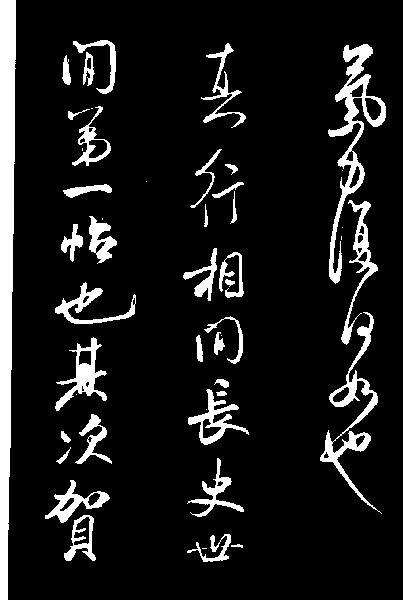 氣力復何如也
真行相間長史世
間第一帖也其次賀